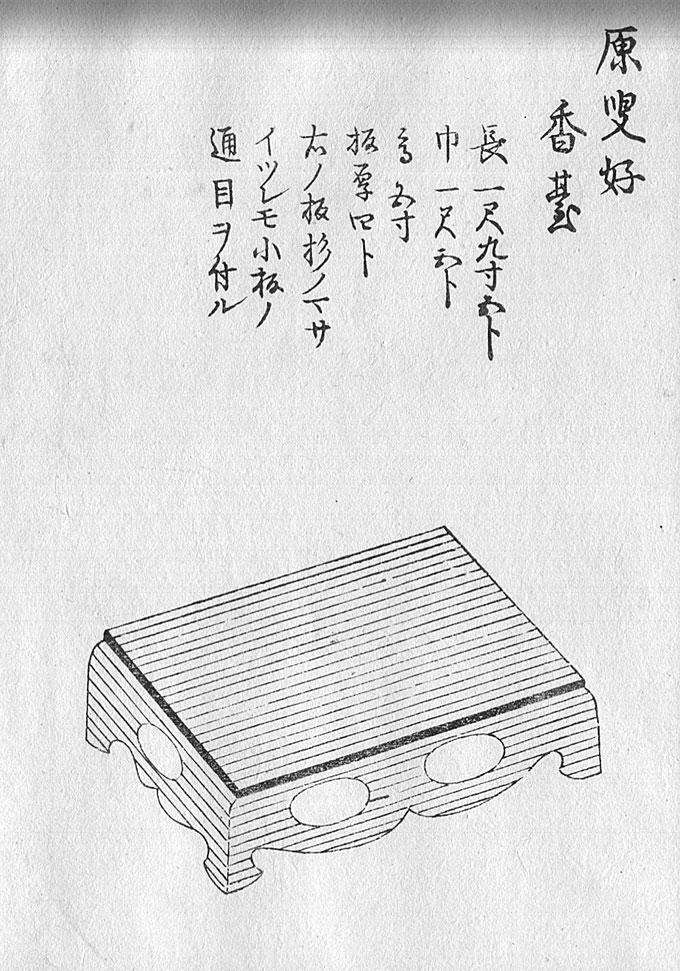 原叟好
香臺
長一尺九寸五卜
巾一尺五卜
高五寸
板厚四卜
右ノ板杉ノマサ
イツレモ小板ノ
通目ヲ付ル